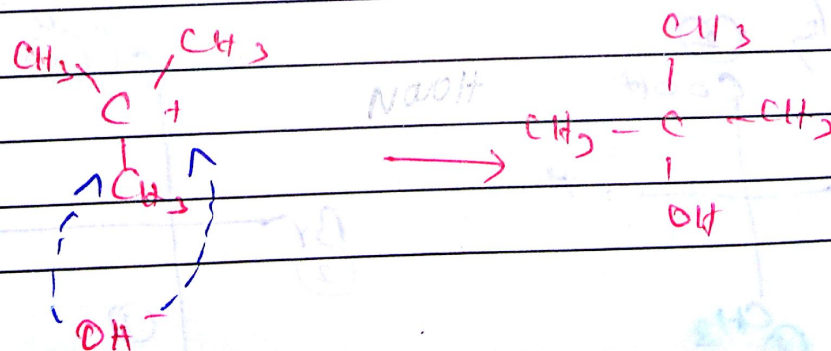 CH3 CH3
C +
CH3
OH-
NaOH
CH3
CH3 - C - CH3
OH